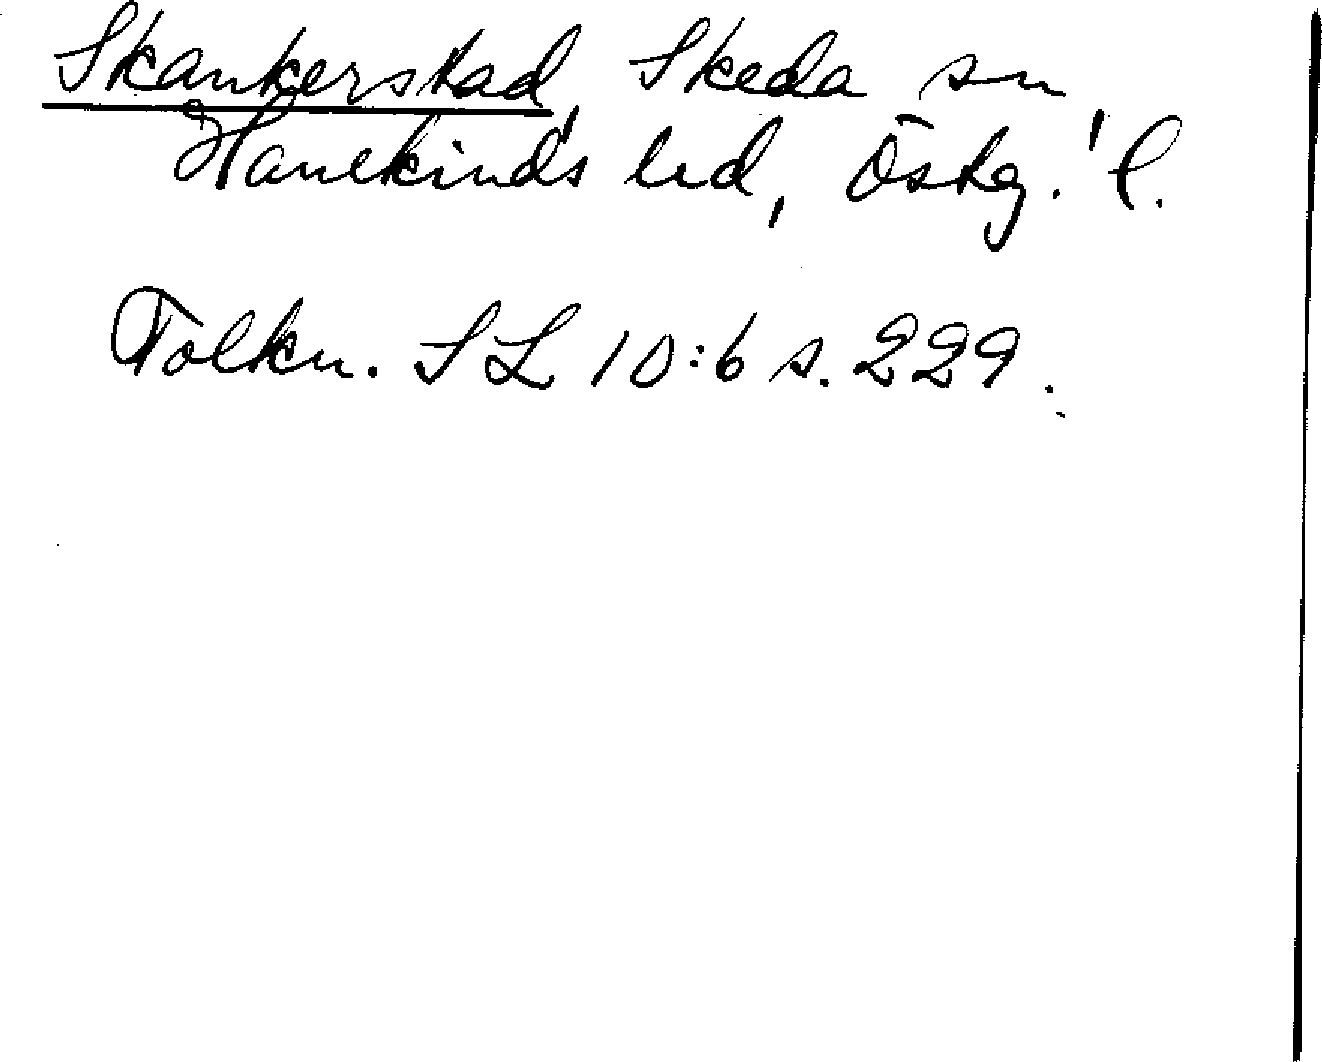 Skankerstad, Skeda sn,
Hanekinds hd, Östg. l.
Tolkn. SL 10:6 s. 229.